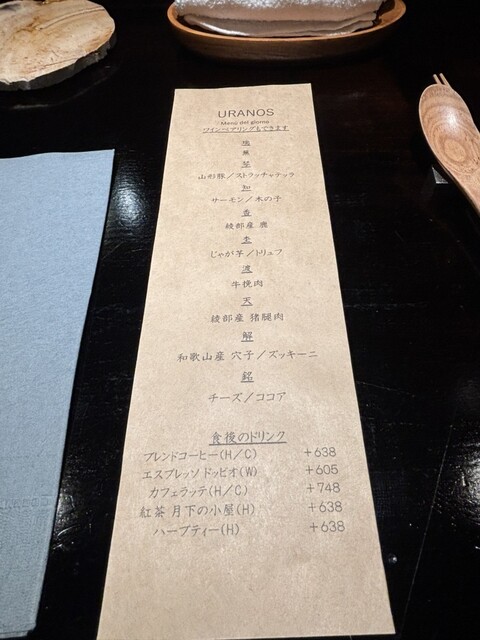 URANOS
Menù del giorno
ワインペアリングもできます
山形豚／ストラッチャテッラ
知
サーモン／木の子
香
綾部産 鹿
杢
じゃが芋／トリュフ
渡
牛挽肉
天
綾部産 猪腿肉
解
和歌山産 穴子／ズッキーニ
銘
チーズ／ココア
食後のドリンク
ブレンドコーヒー(H／C) +638
エスプレッソ ドッピオ(W) +605
カフェラッテ(H／C) +748
紅茶 月下の小屋(H) +638
ハーブティー(H) +638